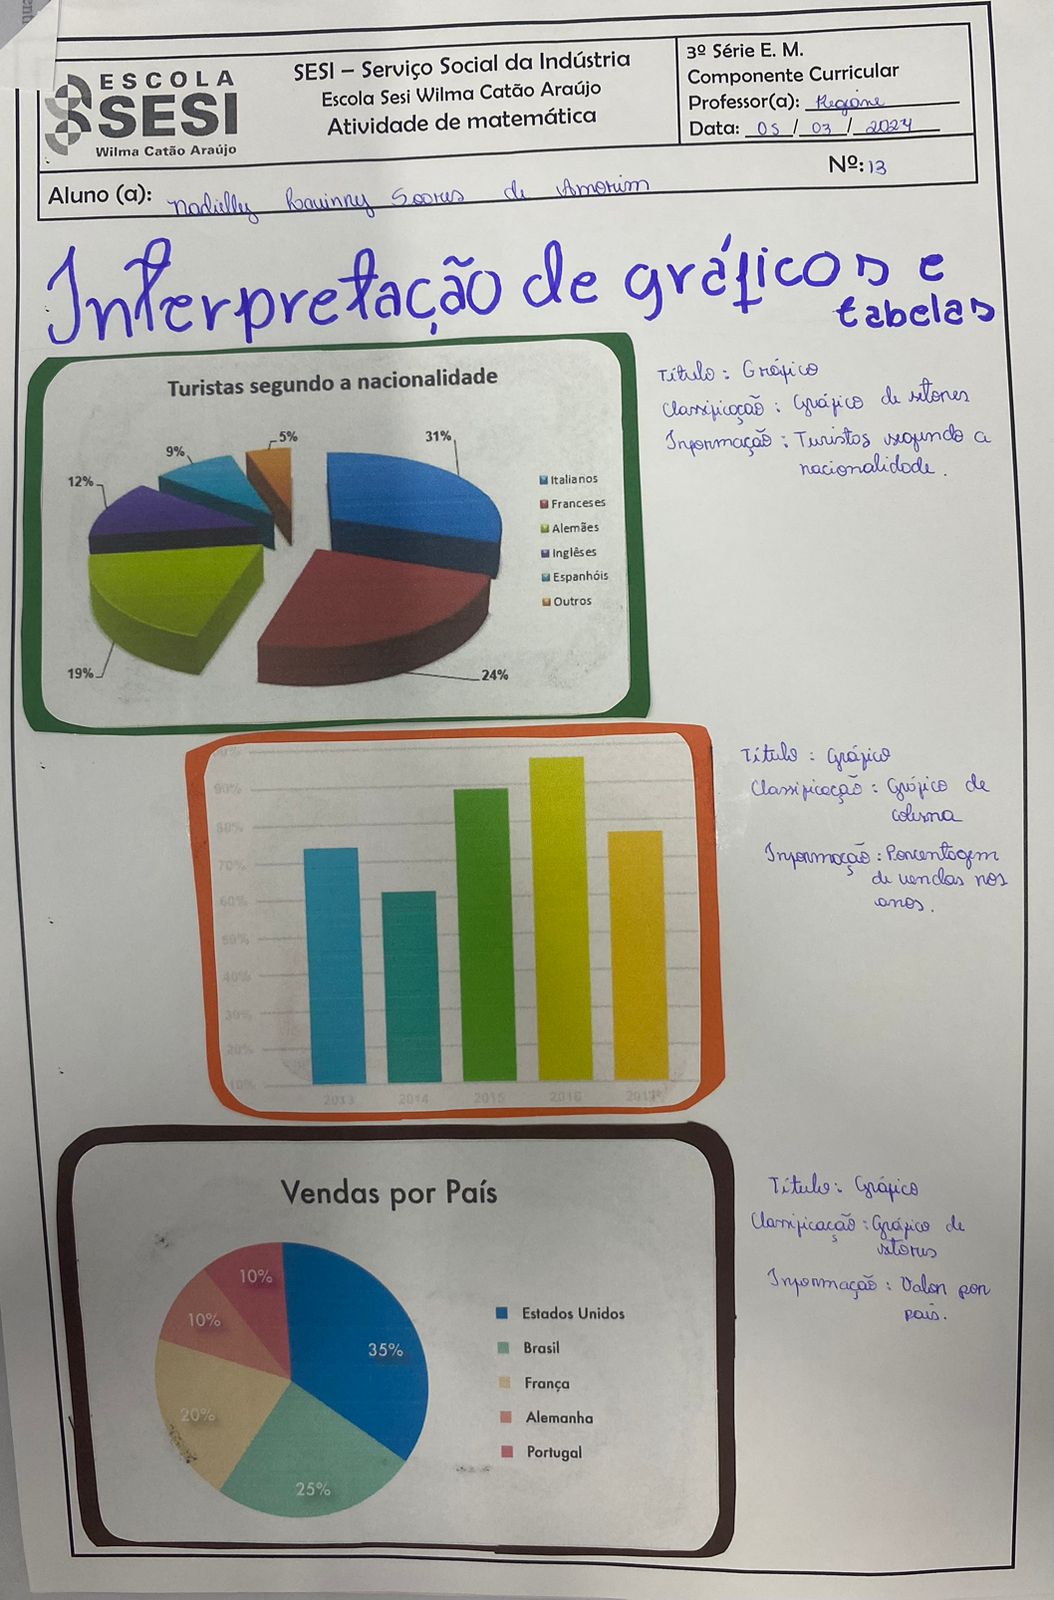 ESCOLA
SESI
Wilma Catão Araújo
SESI – Serviço Social da Indústria
Escola Sesi Wilma Catão Araújo
Atividade de matemática
3º Série E. M.
Componente Curricular
Professor(a): Regiane
Data: 05 / 03 / 2024
Nº: 13
Aluno (a): Soares de Amorim
Interpretação de gráficos e
tabelas
Turistas segundo a nacionalidade
5%
31%
9%
12%
19%
24%
Italianos
Franceses
Alemães
Inglêses
Espanhóis
Outros
Título : Gráfico
Classificação : Gráfico de setores
Informação : Turistas segundo a
nacionalidade.
90%
80%
70%
60%
50%
40%
30%
20%
10%
2013
2014
2015
2016
2017
Título : Gráfico
Classificação : Gráfico de
coluna
Informação : Porcentagem
de vendas nos
anos.
Vendas por País
10%
10%
35%
20%
25%
Estados Unidos
Brasil
França
Alemanha
Portugal
Título : Gráfico
Classificação : Gráfico de
setores
Informação : Valor por
país.